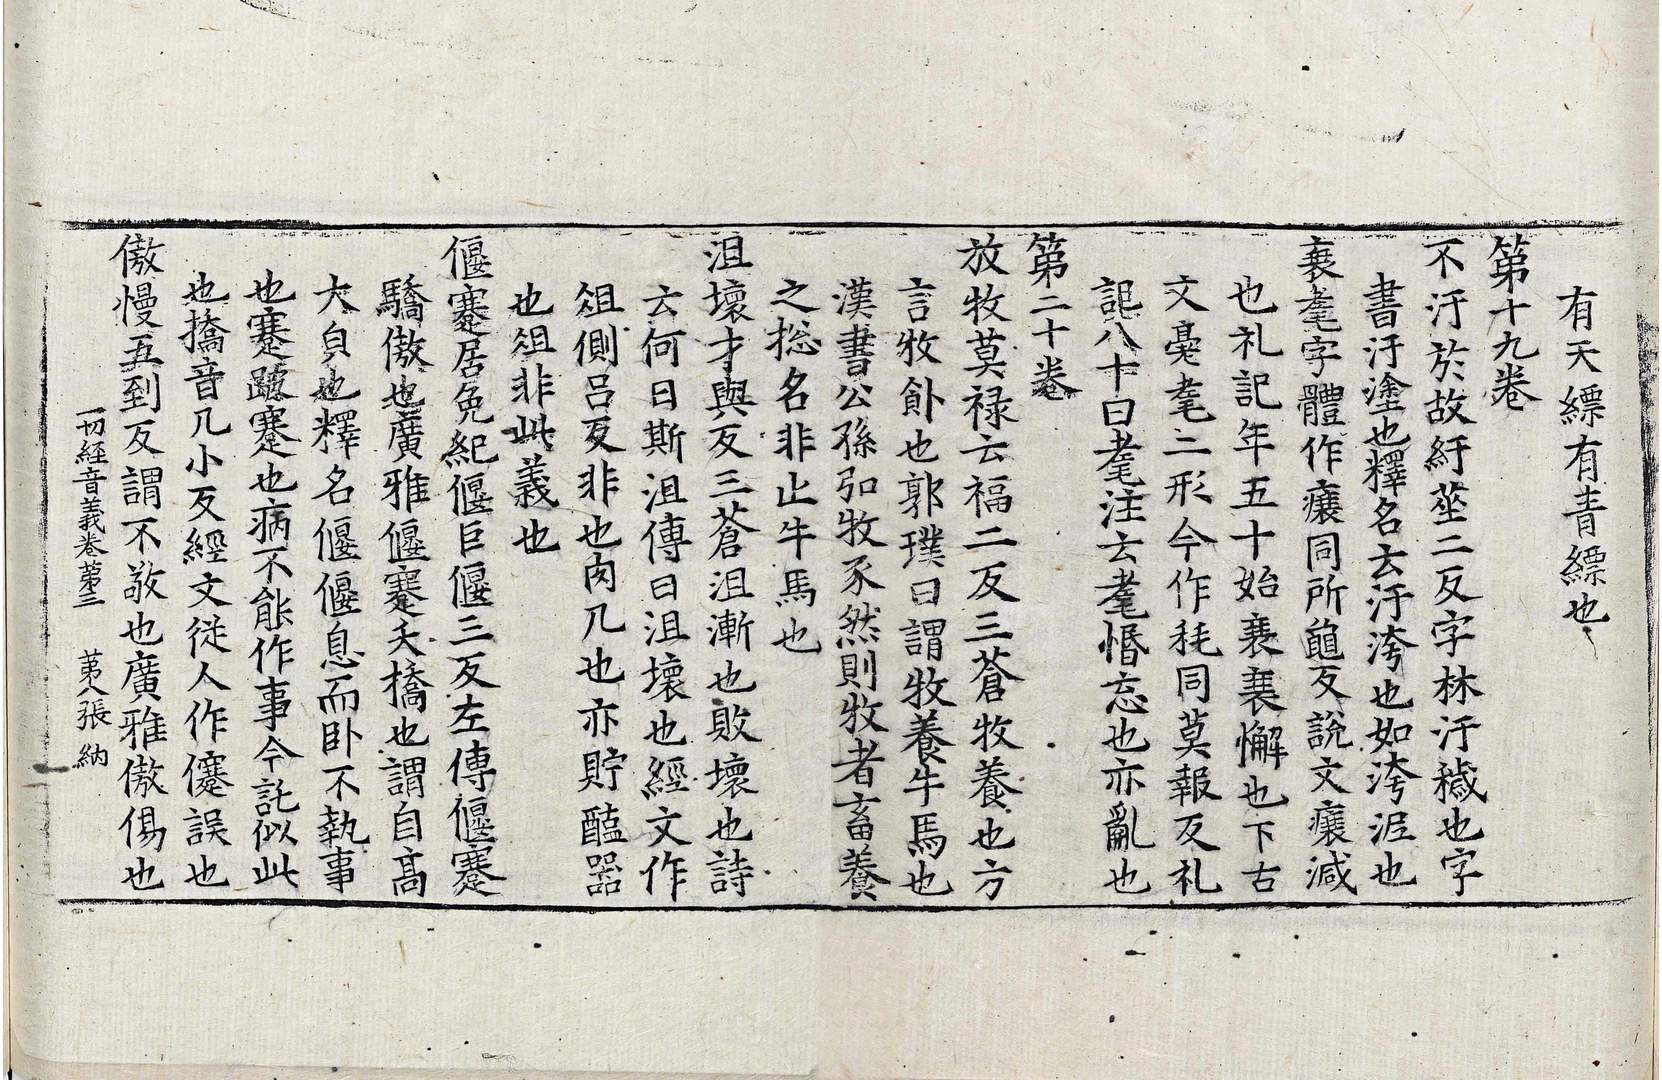 有天縹有青縹也
第十九卷
不汙於故紆莝二反字林汙穢也字
書汙塗也釋名云汙洿也如洿泥也
衰耄字體作㾋同所龜反說文㾋減
也礼記年五十始衰衰懈也下古
文耄耄二形今作秏同莫報反礼
記八十曰耄注云耄惛忘也亦亂也
第二十卷
放牧莫禄云福二反三蒼牧養也方
言牧飤也郭璞曰謂牧養牛馬也
漢書公孫弘牧豕然則牧者畜養
之揔名非止牛馬也
沮壞才與反三蒼沮漸也敗壞也詩
云何日斯沮傳曰沮壞也經文作
俎側呂反非也肉几也亦貯醢器
也俎非此義也
偃蹇居免紀偃巨偃三反左傳偃蹇
驕傲也廣雅偃蹇夭撟也謂自高
大皃也釋名偃偃息而卧不執事
也蹇跛蹇也病不能作事今託似此
也撟音几小反經文従人作僊誤也
傲慢五到反謂不敬也廣雅傲傷也
一切経音義卷苐三 苐八張 納